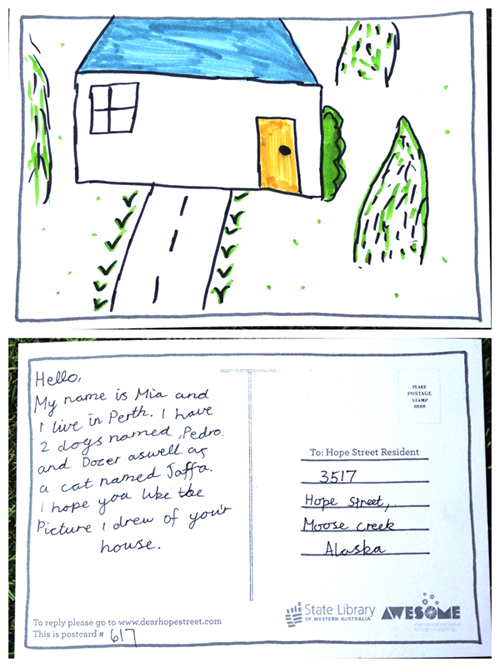 Hello,
My name is Mia and
I live in Perth. I have
2 dogs named ,Pedro.
and Dozer aswell as
a cat named Jaffa.
I hope you like the
Picture I drew of your
house.
To reply please go to www.dearhopestreet.com
This is postcard # 617
PLACE
POSTAGE
STAMP
HERE
To: Hope Street Resident
3517
Hope Street,
Moose Creek
Alaska
State Library
OF WESTERN AUSTRALIA
AWESOME